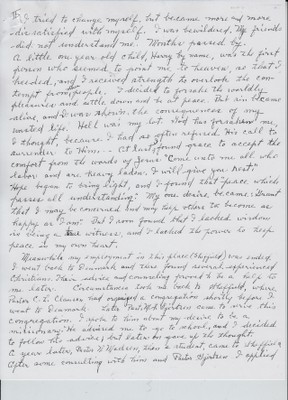 I tried to change myself, but became more and more
dissatisfied with myself. I was bewildered. My friends
did not understand me. Months passed by.
A little one year old child, Harry by name, was the first
person who seemed to point me to heaven, as that I
needed, and I received strength to overlook the con-
tempt from people. I decided to forsake the worldly
pleasures and settle down and be at peace. But sin became
alive, and I was shown the consequences of my
wasted life. Hell was my lot. God has forsaken me,
I thought, because I had so often refused His call to
surrender to Him. At last, found grace to accept the
comfort from the words of Jesus "Come unto me all who
labor and are heavy laden, I will give you rest."
Hope began to bring light, and I found that "peace which
passes all understanding." My one desire became: "Grant
that I may be concerned and may help others to become as
happy as I am." But I soon found that I lacked wisdom
in being a witness, and I lacked the power to keep
peace in my own heart.
Meanwhile my employment in this place (Sheffield) was ended.
I went back to Denmark and there found several experienced
Christians. Their advice and counseling proved to be a help to
me later. Circumstances took me back to Sheffield, where
Pastor C. L. Clausen had organized a congregation shortly before I
went to Denmark. Later Past. H. H. came to serve this
congregation. I spoke to him about my desire to be a
missionary. He advised me to go to school, and I decided
to follow his advice, but later on gave up the thought.
A year later, Peter V. Madsen, then a student, came to Sheffield.
After some consulting with him and Pastor I applied